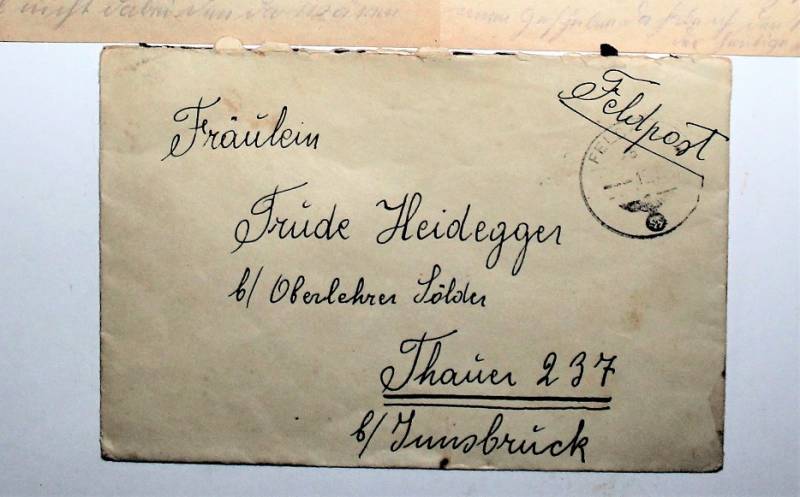 nicht dabei
Feldpost
FEL
Fräulein
Trude Heidegger
b/ Oberlehrer Sölder
Thauer 237
b/ Innsbruck